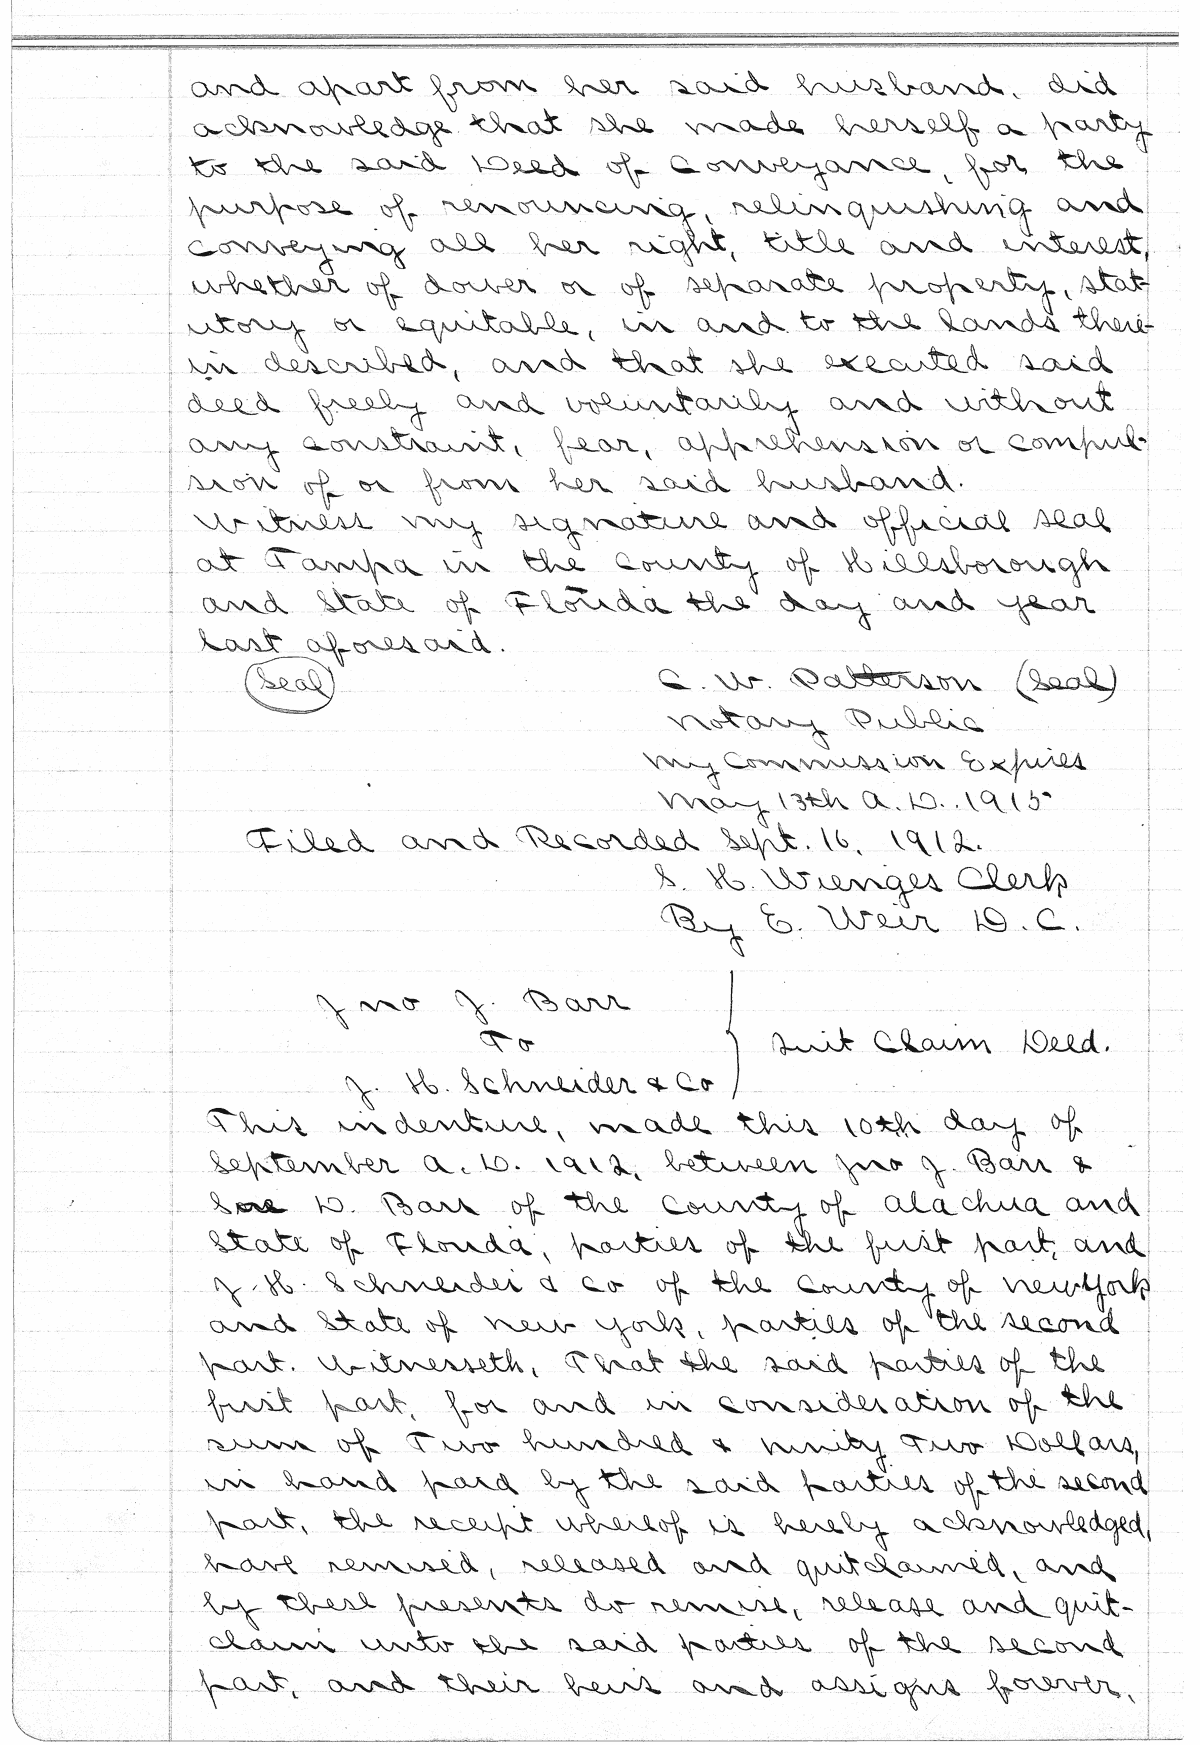 and apart from her said husband, did
acknowledge that she made herself a party
to the said Deed of Conveyance, for the
purpose of renouncing, relinquishing and
conveying all her right, title and interest,
whether of dower or of separate property, stat-
utory or equitable, in and to the lands there-
in described, and that she executed said
deed freely and voluntarily and without
any constraint, fear, apprehension or compul-
sion of or from her said husband.
Witness my signature and official seal
at Tampa in the County of Hillsborough
and State of Florida the day and year
last aforesaid.
(Seal) C. W. Patterson (Seal)
Notary Public
My Commission Expires
May 13th A. D. 1915
Filed and Recorded Sept. 16, 1912.
S. H. Wienges Clerk
By E. Weir D. C.
Jno J. Barr
To
Quit Claim Deed.
J. H. Schneider & Co
This indenture, made this 10th day of
September A. D. 1912, between Jno J. Barr &
D. Barr of the County of Alachua and
State of Florida, parties of the first part, and
J. H. Schneider & Co of the County of New York
and State of New York, parties of the second
part. Witnesseth, That the said parties of the
first part, for and in consideration of the
sum of Two hundred & ninity Two Dollars,
in hand paid by the said parties of the second
part, the receipt whereof is hereby acknowledged,
have remised, released and quitclaimed, and
by these presents do remise, release and quit-
claim unto the said parties of the second
part, and their heirs and assigns forever,